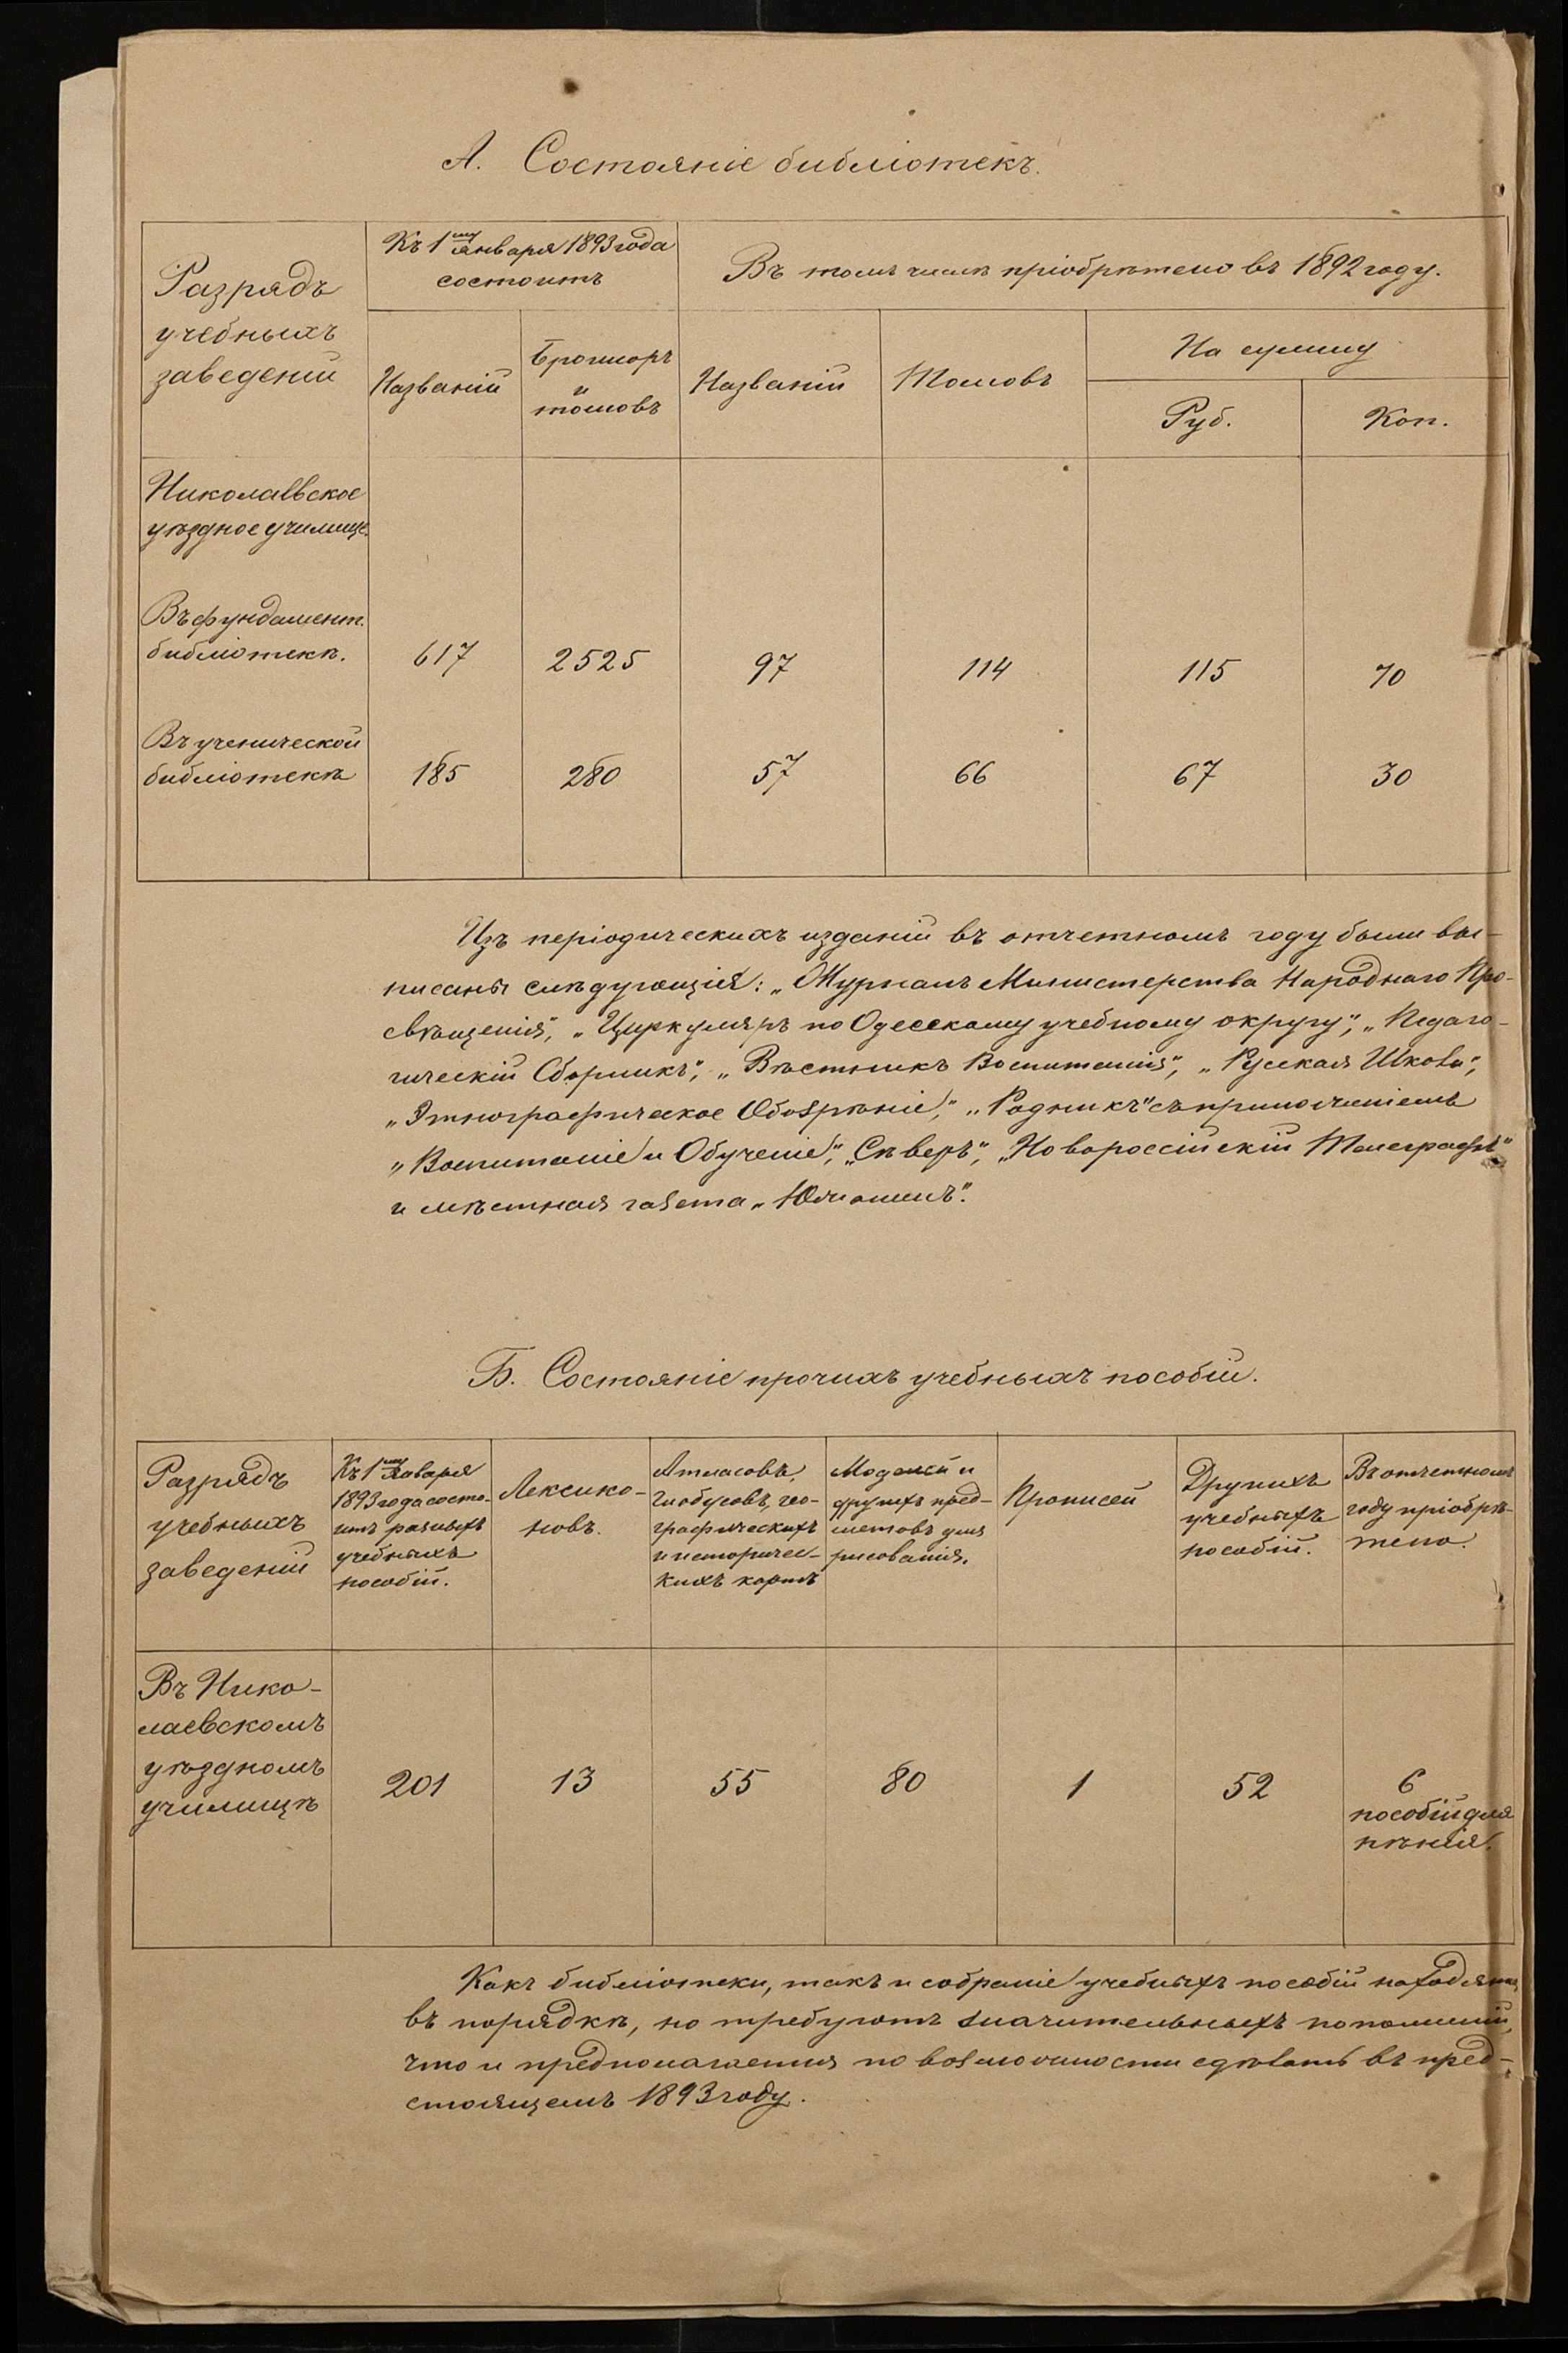 А. Состояніе библіотекъ.
Разрядъ
учебныхъ
заведеній
Къ 1му Января 1893 года
состоитъ
Въ томъ числѣ пріобрѣтено въ 1892 году.
Названій
Брошюръ
и
томовъ
Названій
Томовъ
На сумму
Руб.
Коп.
Николаевское
уѣздное училище.
Въ фундамент.
библіотекѣ.
617
2525
97
114
115
70
Въ ученической
библіотекѣ
185
280
57
66
67
30
Изъ періодическихъ изданій въ отчетномъ году были вы-
писаны слѣдующія: „Журналъ Министерства Народнаго Про-
свѣщенія", „Циркуляръ по Одесскому учебному округу", „Педаго-
гическій Сборникъ", „Вѣстникъ Воспитанія", „Русская Школа",
„Этнографическое Обозрѣніе", „Родникъ" съ приложеніемъ
„Воспитаніе и Обученіе", „Сѣверъ", „Новороссійскій Телеграфъ"
и мѣстная газета „Южанинъ".
Б. Состояніе прочихъ учебныхъ пособій.
Разрядъ
учебныхъ
заведеній
Къ 1му Января
1893 года состо-
итъ разныхъ
учебныхъ
пособій.
Лексико-
новъ.
Атласовъ,
глобусовъ, гео-
графическихъ
и историчес-
кихъ картъ
Моделей и
другихъ пред-
метовъ для
рисованія.
Прописей
Другихъ
учебныхъ
пособій.
Въ отчетномъ
году пріобрѣ-
тено.
Въ Нико-
лаевскомъ
уѣздномъ
училищѣ
201
13
55
80
1
52
6
пособій для
пѣнія.
Какъ библіотеки, такъ и собраніе учебныхъ пособій находятся
въ порядкѣ, но требуютъ значительныхъ пополненій,
что и предполагается по возможности сдѣлать въ пред-
стоящемъ 1893 году.